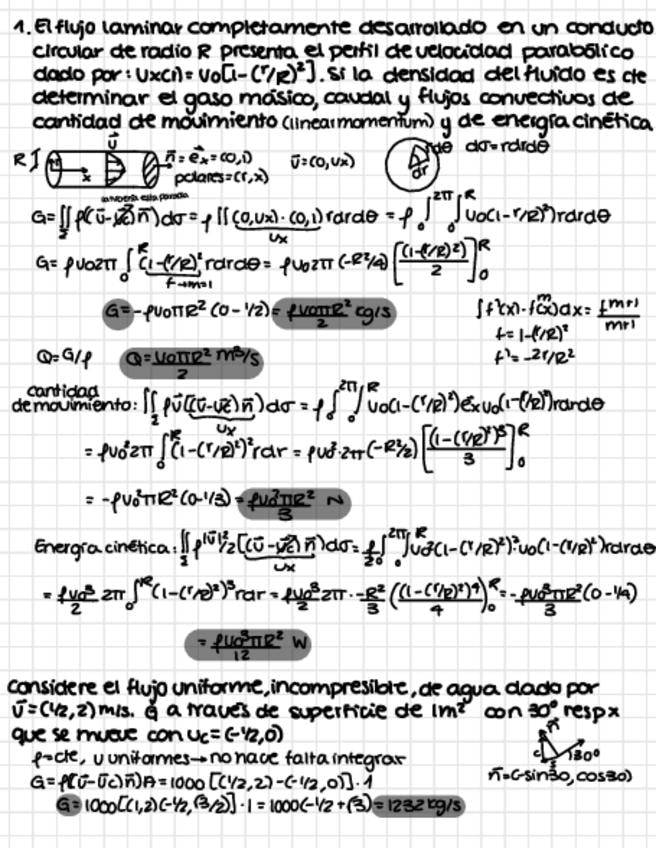 1. El flujo laminar completamente desarrollado en un conducto
circular de radio R presenta el perfil de velocidad parabólico
dado por: Ux(r)= U0[1-(r/R)²]. Si la densidad del fluido es cte
determinar el gaso másico, caudal y flujos convectivos de
cantidad de movimiento (linear momentum) y de energía cinética
R I x ū n̄ = ēx = (0,1) ū=(0,Ux) dr dθ dσ=rdrdθ
polares=(r,x)
G=∬ ρ(ū-ūc)n̄)dσ = ρ∬(0,Ux)·(0,1) rdrdθ = ρ∫₀^2π ∫₀^R U0(1-(r/R)²)rdrdθ
Ux
G= ρU02π ∫₀^R (1-(r/R)² rdrdθ = ρU02π (-R²/4) [(1-(r/R)²)/2]₀^R
f→m=1
G=-ρU0πR² (0-1/2) = ρU0πR²/2 kg/s
∫f'(x)·f(x)^m dx = f^m+1/m+1
f=1-(r/R)²
f'=-2r/R²
Q=G/ρ Q=U0πR²/2 m³/s
cantidad
de movimiento: ∬ ρū[(ū-ūc)n̄)dσ = ρ∫₀^2π ∫₀^R U0(1-(r/R)²)ēx U0(1-(r/R)²)rdrdθ
Ux
= ρU0²2π ∫₀^R (1-(r/R)²)² rdr = ρU0²·2π(-R²/2) [(1-(r/R)²)³/3]₀^R
= -ρU0²πR²(0-1/3) = ρU0²πR²/3 N
Energía cinética: ∬ ρ|ū|²/2 [(ū-ūc)n̄)dσ = ρ/2 ∫₀^2π ∫₀^R U0²(1-(r/R)²)²·U0(1-(r/R)²)rdrdθ
Ux
= ρU0³/2 2π ∫₀^R (1-(r/R)²)³ rdr = ρU0³/2 2π·-R²/3 ((1-(r/R)²)⁴/4)₀^R = -ρU0³πR²/3 (0-1/4)
= ρU0³πR²/12 W
Considere el flujo uniforme, incompresible, de agua dado por
ū=(1/2,2) m/s. G a través de superficie de 1m² con 30° resp x
que se mueve con uc=(-1/2,0)
ρ=cte, u uniformes→no hace falta integrar
n̄ 30°
G=ρ(ū-ūc)n̄)A=1000[(1/2,2)-(-1/2,0)]·1
n̄=(-sin30, cos30)
G=1000[(1,2)(-1/2,√3/2)]·1=1000(-1/2+√3)=1232kg/s